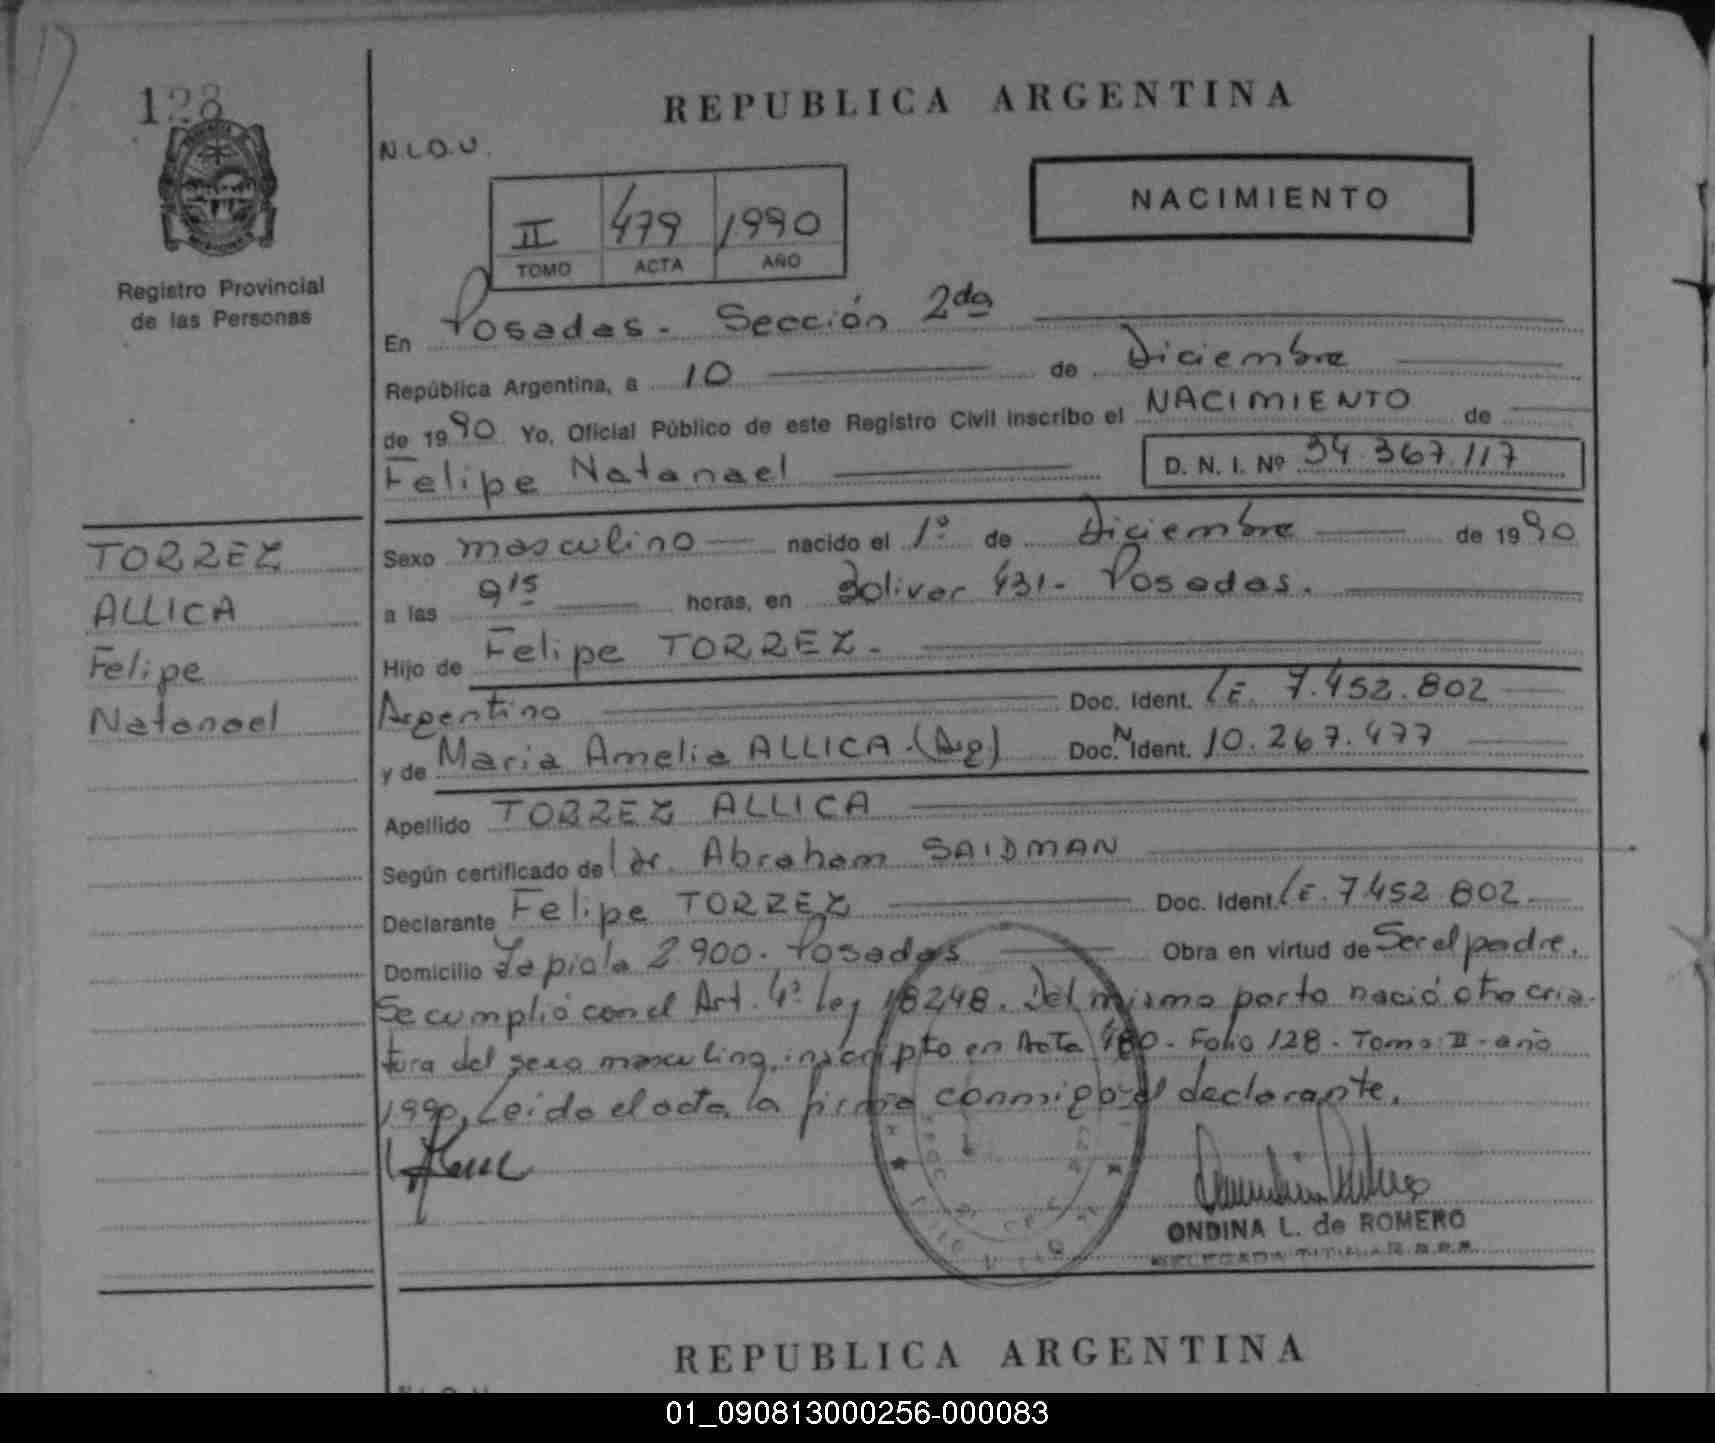 128
REPUBLICA ARGENTINA
N.L.O.U.
NACIMIENTO
II 479 1990
TOMO ACTA AÑO
Registro Provincial
de las Personas
En Posadas - Sección 2da
República Argentina, a 10 de Diciembre
de 1990 Yo, Oficial Público de este Registro Civil inscribo el NACIMIENTO de
Felipe Natanael D. N. I. Nº 34.367.117
TORREZ
ALLICA
Felipe
Natanael
Sexo masculino nacido el 1º de Diciembre de 1990
a las 9 15 horas, en Bolivar 431 - Posadas.
Hijo de Felipe TORREZ -
Argentino Doc. Ident. LE. 7.452.802
y de Maria Amelia ALLICA (Arg) Doc. N Ident. 10.267.477
Apellido TORREZ ALLICA
Según certificado del dr. Abraham SAIDMAN
Declarante Felipe TORREZ Doc. Ident. LE. 7452.802
Domicilio Zapiola 2.900. Posadas Obra en virtud de Ser el padre.
Se cumplió con el Art. 4º Ley 18248. Del mismo parto nació otro cria-
tura del sexo masculino, inscripto en Acta 480 - Folio 128 - Tomo II - año
1990, Leida el acta, la firma conmigo el declarante.
ONDINA L. de ROMERO
DELEGADA TITULAR
REPUBLICA ARGENTINA
01_090813000256-000083